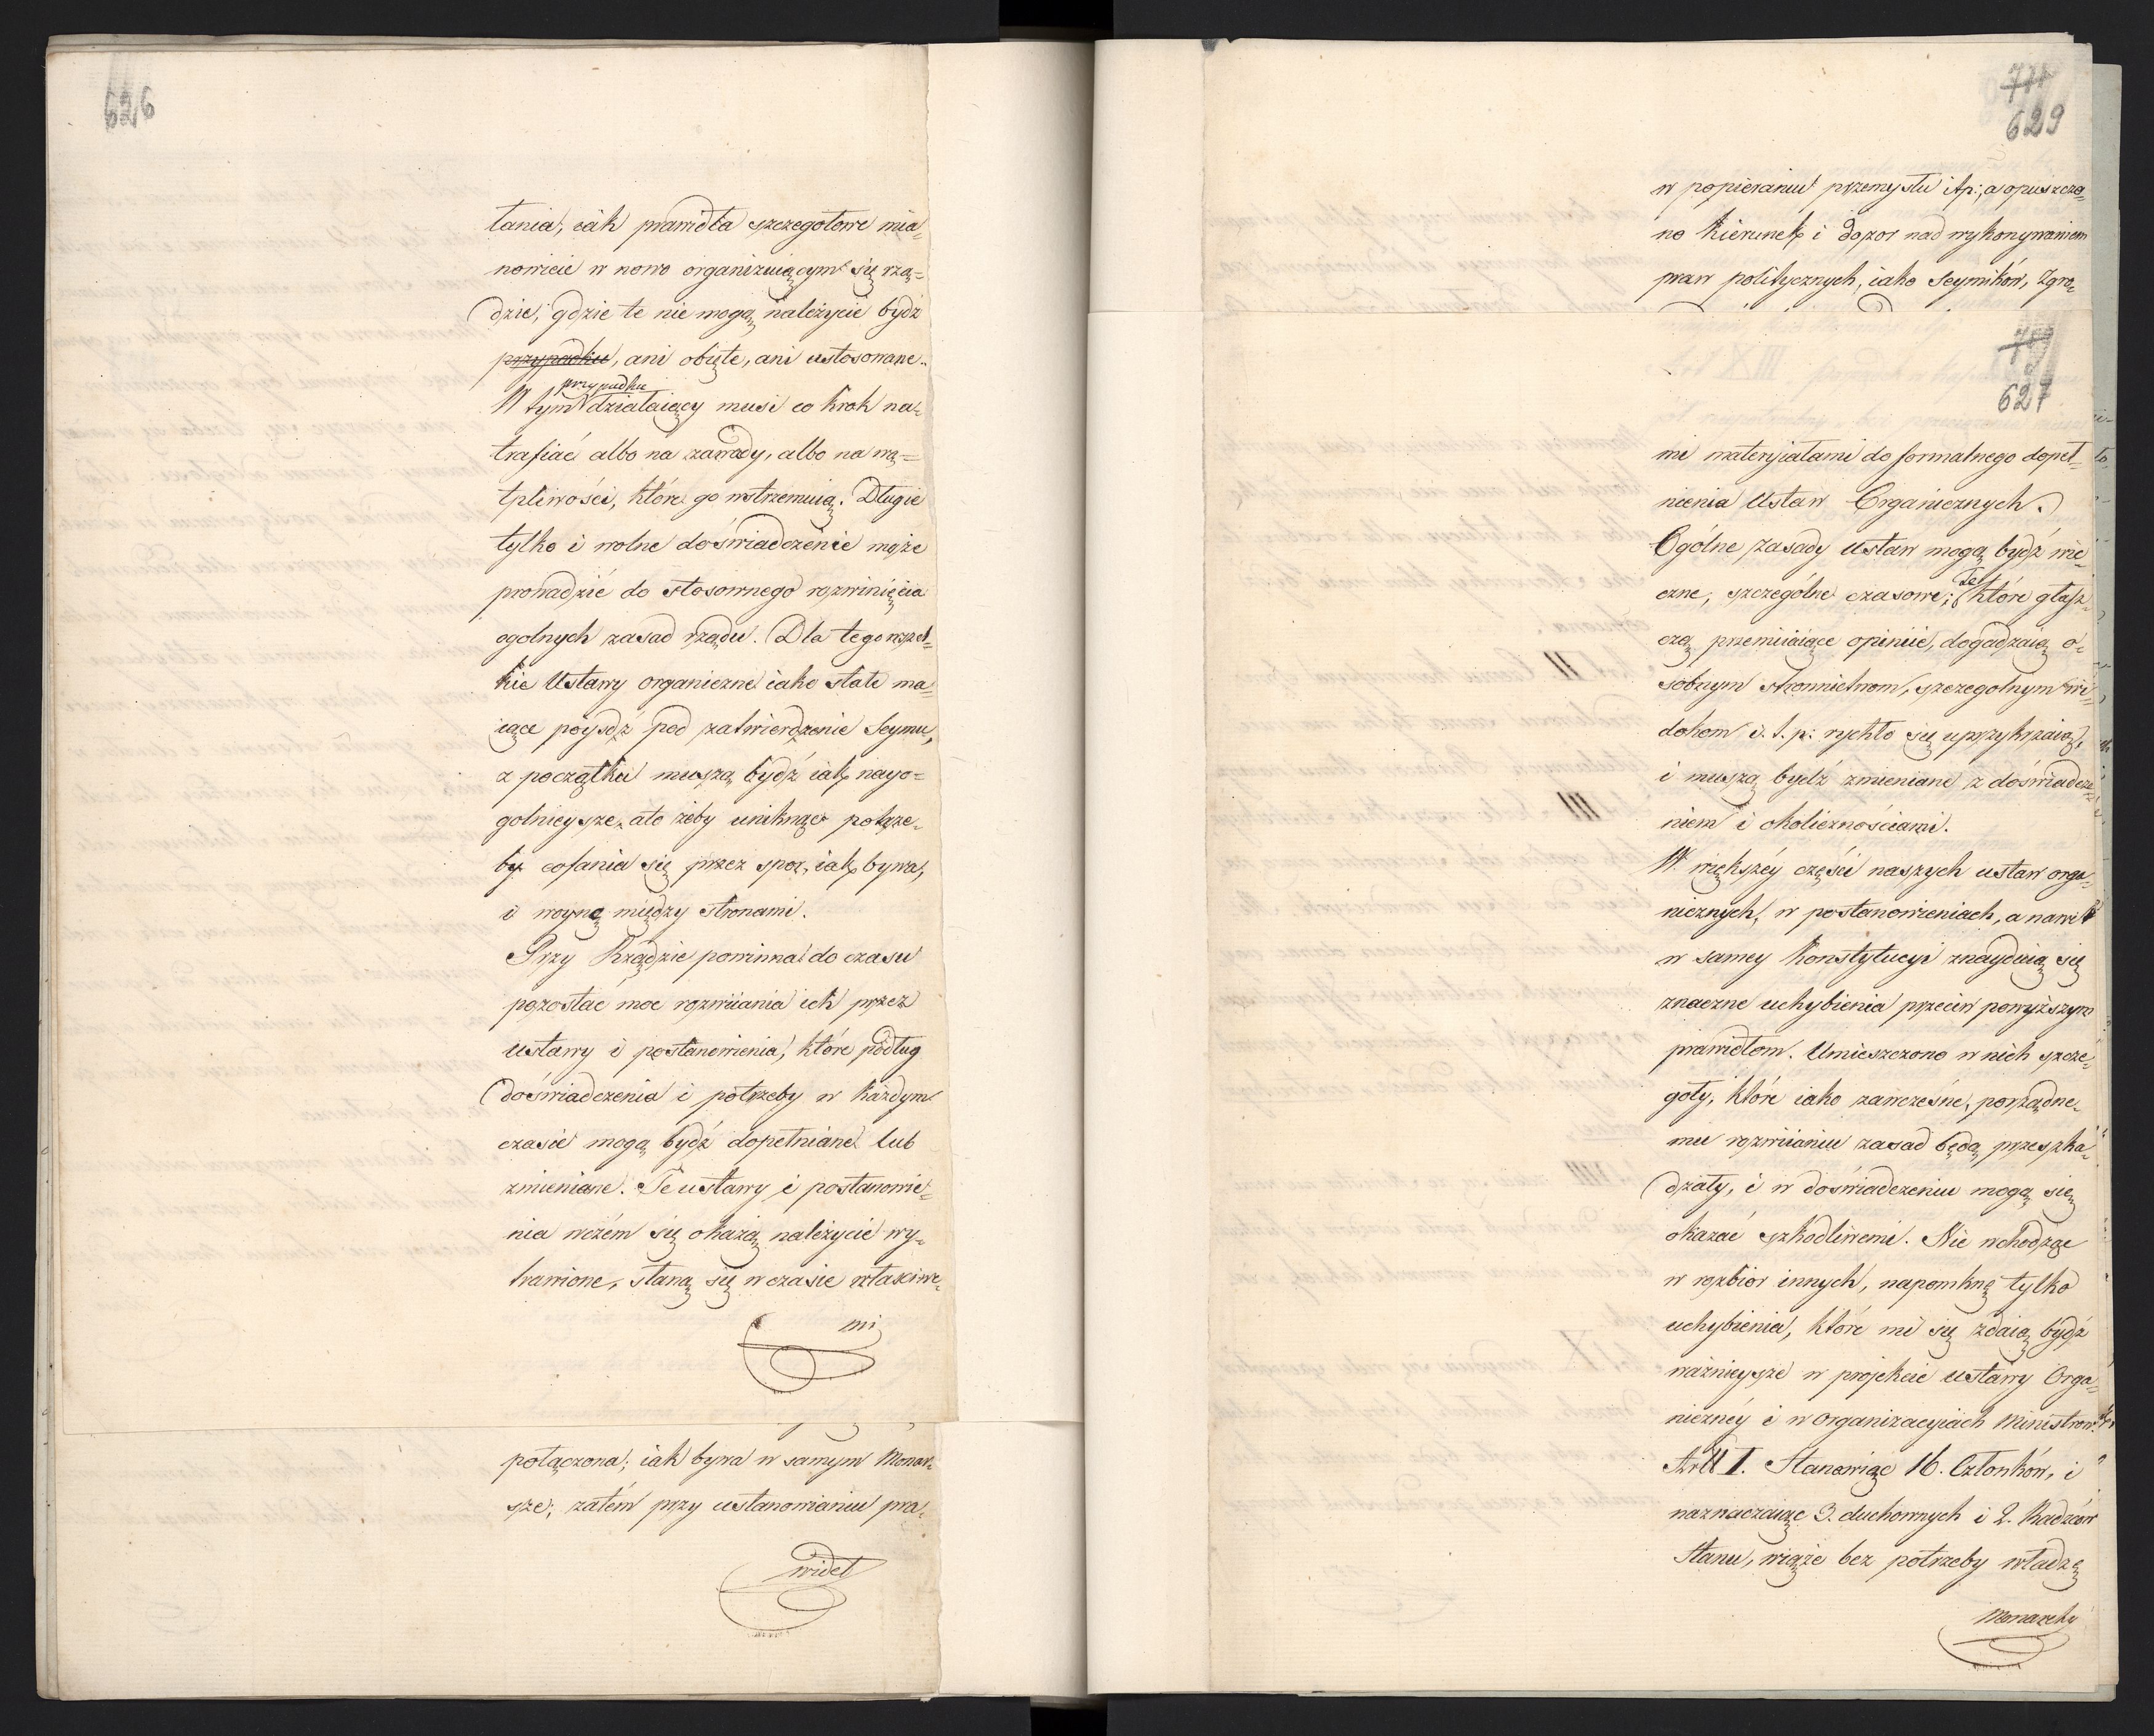 626
łania, iák prawidła szczegołowe mia=
nowicie w nowo organizuiącym się rzą=
dzie, gdzie te nie mogą należycie bydź
przypadku, ani obięte, ani ustosowane.
przypadku
W tym działaiący musi co krok na=
trafiać albo na zawady, albo na wą=
tpliwości, które go wstrzemuią. Długie
tylko i wolne doświadczenie może
prowadzić do stosownego rozwinięcia
ogolnych zasad rządu. Dla tego wszel=
kie Ustawy organiczne iako stałe ma=
iące póysdź pod zatwierdzenie Seymu,
z początku muszą bydź iak nayo=
golnieysze, ato żeby uniknąć potrze=
by cofania się przez spor, iak bywa,
i woynę między stronami.
Przy Rządzie powinna do czasu
pozostać moc rozwiiania ich przez
ustawy i postanowienia, które podług
doświadczenia i potrzeby w każdym
czasie mogą bydź dopełniane lub
zmieniane. Te ustawy i postanowie=
nia wczém się okażą należycie wy=
trawione, staną się w czasie właściwe=
mi
połączona; iak bywa w samym Monar=
sze; zatém przy ustanowianiu pra=
wideł
771
629
w popieraniu przemysłu itp:, a opuszczo=
no kierunek i dozor nad wykonywaniem
praw politycznych, iako Seymików, Zgro=
627
mi materyiałami do formalnego dopeł=
nienia Ustaw Organicznych.
Ogólne zasady Ustaw mogą bydź wie=
czne, szczególne czasowe; te które głasz=
czą przemiiaiące opiniie, dogadzaią o=
sobnym stronnictwom, szczegolnym wi=
dokom i. t. p: rychło się uprzykrzaią,
i muszą bydź zmieniane z doświadcze=
niem i okolicznościami.
W większéy części naszych ustaw orga=
nicznych, w postanowieniach, a nawet
w samey Konstytucyi znayduią się
znaczne uchybienia przeciw powyższym
prawidłom. Umieszczono w nich szcze=
goły, które iako zawczesne, porządne=
mu rozwiianiu zasad będą przeszka=
dzały, i w doświadczeniu mogą się
okazać szkodliwemi. Nie wchodząc
w rozbior innych, napomknę tylko
uchybienia, które mi się zdaią bydź
ważnieysze w projekcie ustawy Orga=
nicznéy i w organizacyiach Ministrow:
Art I. Stanowiąc 16. Członków, i
naznaczaiąc 3. duchownych i 2. Radzców
Stanu, wiąże bez potrzeby władzę
Monarchy